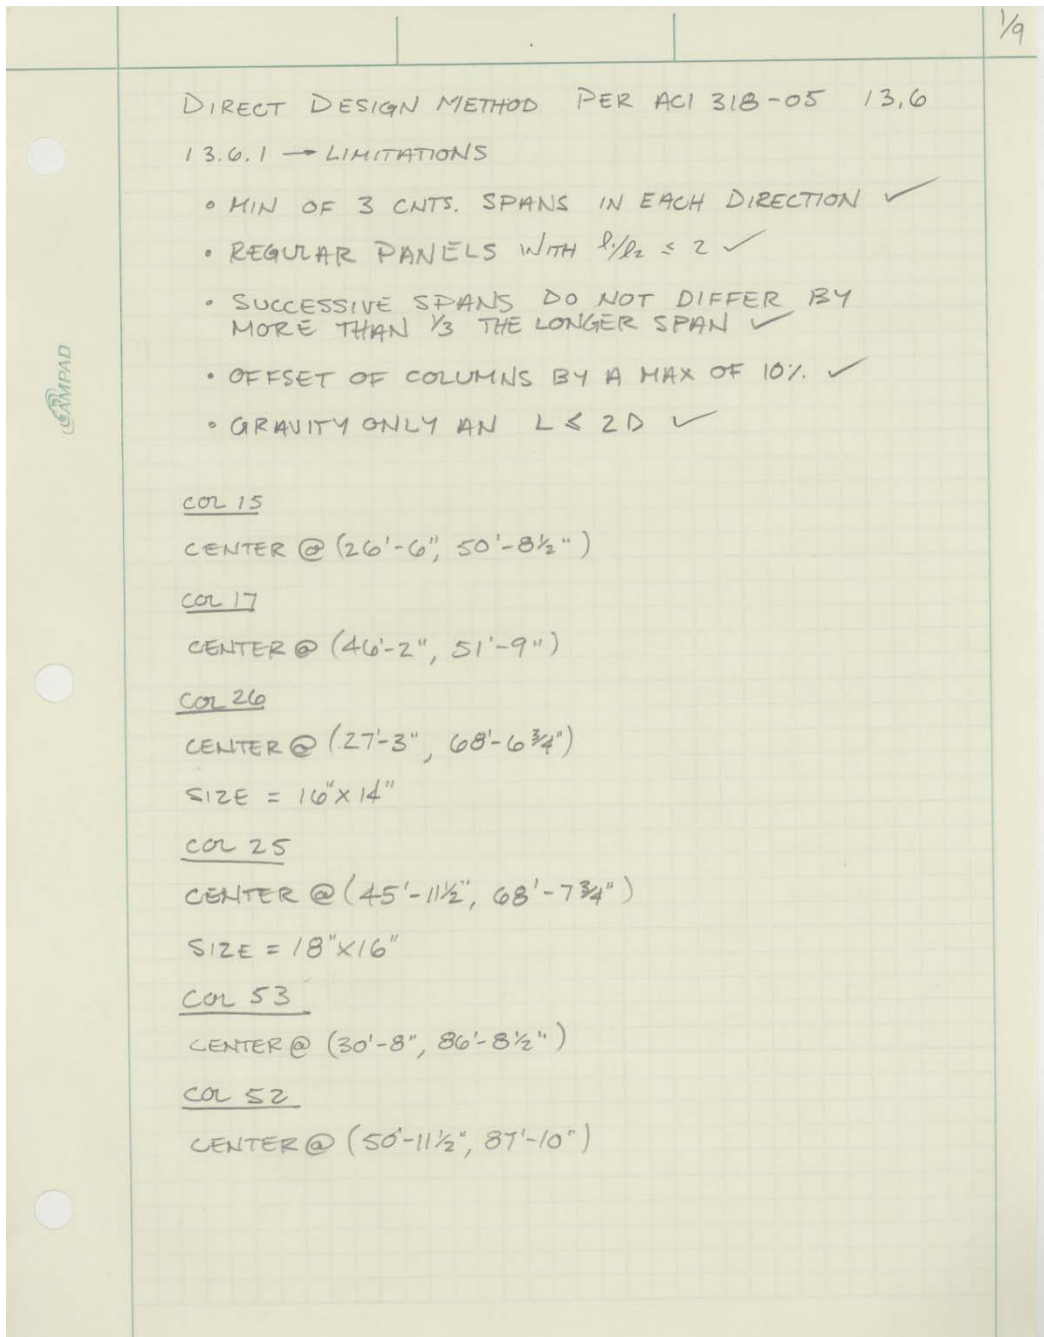 1/9
DIRECT DESIGN METHOD PER ACI 318-05 13.6
13.6.1 → LIMITATIONS
• MIN OF 3 CNTS. SPANS IN EACH DIRECTION ✓
• REGULAR PANELS WITH l1/l2 ≤ 2 ✓
• SUCCESSIVE SPANS DO NOT DIFFER BY
MORE THAN 1/3 THE LONGER SPAN ✓
• OFFSET OF COLUMNS BY A MAX OF 10% ✓
• GRAVITY ONLY AN L ≤ 2D ✓
AMPAD
COL 15
CENTER @ (26'-6", 50'-8½")
COL 17
CENTER @ (46'-2", 51'-9")
COL 26
CENTER @ (27'-3", 68'-6¾")
SIZE = 16"X14"
COL 25
CENTER @ (45'-11½", 68'-7¾")
SIZE = 18"X16"
COL 53
CENTER @ (30'-8", 86'-8½")
COL 52
CENTER @ (50'-11½", 87'-10")